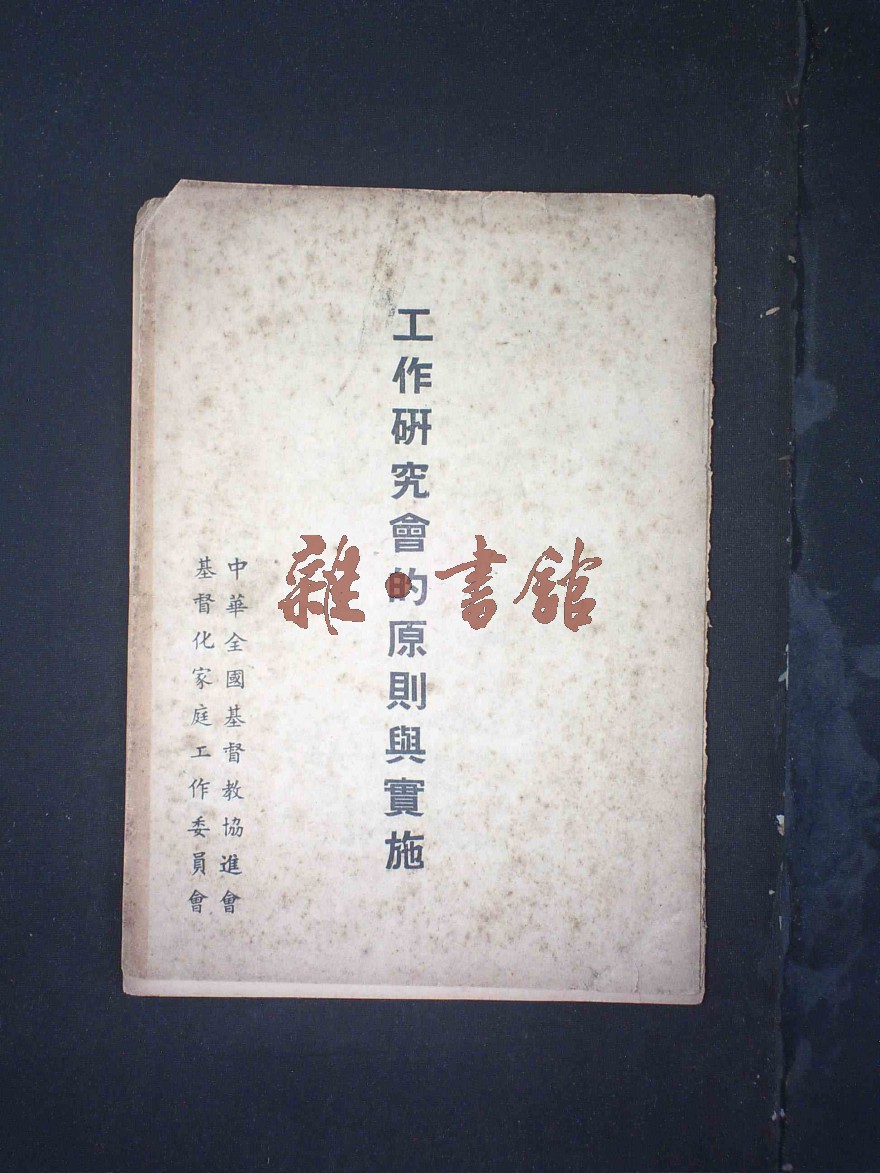 工作研究會的原則與實施
中華全國基督教協進會
基督化家庭工作委員會
雜·書館